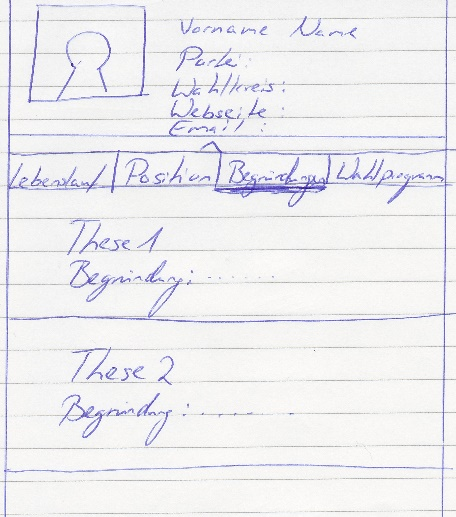 Vorname Name
Partei:
Wahlkreis:
Webseite:
Email:
Lebenslauf Position Begründungen Wahlprogramm
These 1
Begründung: .......
These 2
Begründung: ......